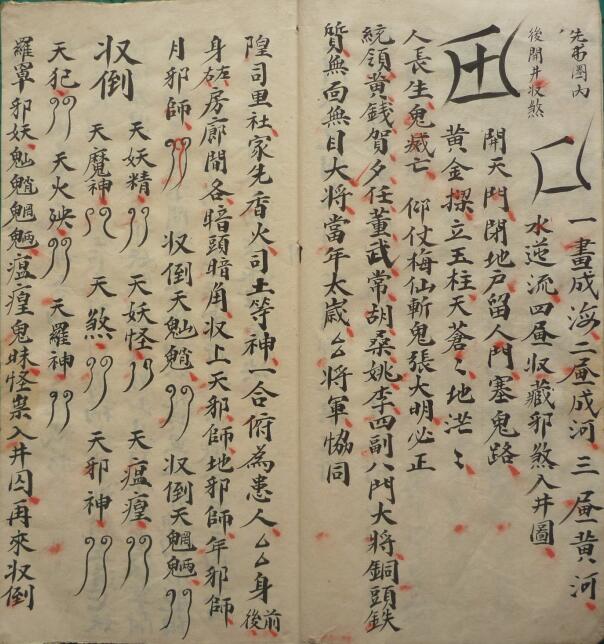 先書圈內
後開井收煞
一畫成海二畫成河三畫黃河
水逆流四畫収藏邪煞入井圖
開天門閉地戶留人門塞鬼路
黃金探立玉柱天蒼〻地茫〻
人長生鬼滅亡　仰仗梅仙斬鬼張大明必正
統領黃錢賀夕任董武常胡桑姚李四副八門大將銅頭鉄
質無面無目大將當年太歲厶厶將軍恊同
隍司里社家先香火司土等神一合俯為患人厶厶身前後
身左右房廊間各暗頭暗角収上天邪師地邪師年邪師
月邪師　収倒天魈魈　収倒天魍魎
収倒　天妖精　天妖怪　天瘟㾮
天魔神　天煞　天邪神
天犯　天火殃　天羅神
羅罩邪妖魈魍魎瘟㾮鬼昧怪案入井囚再來収倒